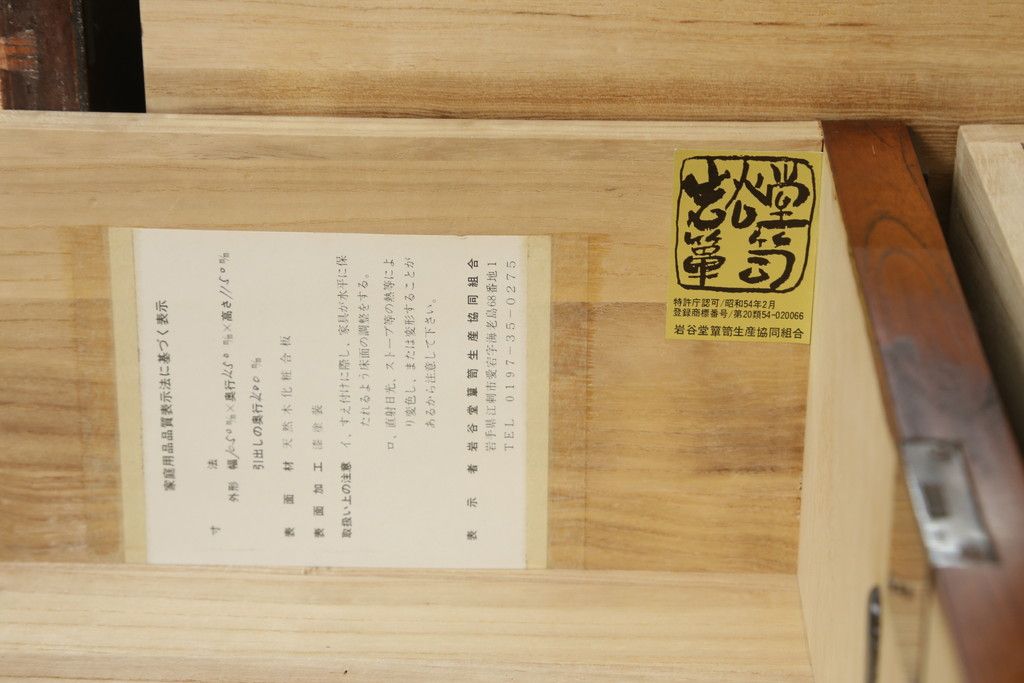 家庭用品品質表示法に基づく表示
寸法
外形 幅 ㎜×奥行450㎜×高さ1150㎜
引出しの奥行400㎜
表面材 天然木化粧合板
表面加工 漆塗装
取扱い上の注意 イ、すえ付けに際し、家具が水平に保
たれるよう床面の調整をする。
ロ、直射日光、ストーブ等の熱等によ
り変色し、または変形することが
あるから注意して下さい。
表示者 岩谷堂簞笥生産協同組合
岩手県江刺市愛宕字海老島68番地1
TEL 0197-35-0275
岩谷堂
簞笥
特許庁認可/昭和54年2月
登録商標番号/第20類54-020066
岩谷堂簞笥生産協同組合